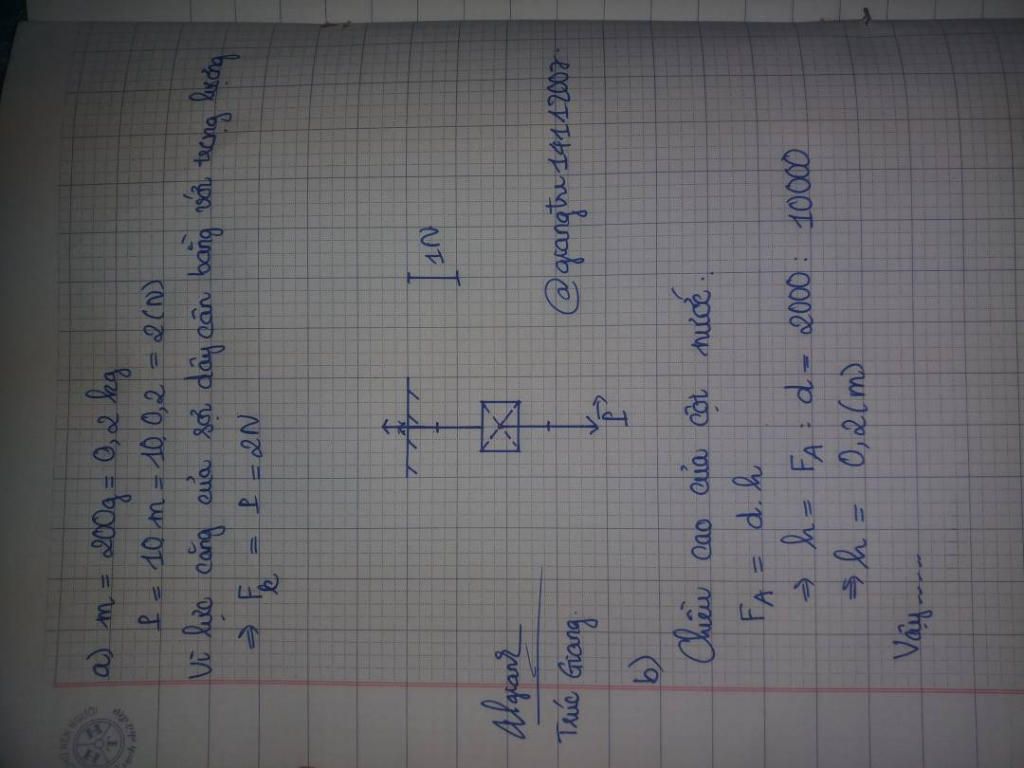 a) m = 200g = 0,2 kg
P = 10.m = 10.0,2 = 2(N)
Vì lực căng của sợi dây cân bằng với trọng lượng
⇒ Fk = P = 2N
1N
P
@giangtr14112007.
Trúc Giang
b)
Chiều cao của cột nước:
FA = d.h
⇒ h = FA : d = 2000 : 10000
⇒ h = 0,2(m)
Vậy......